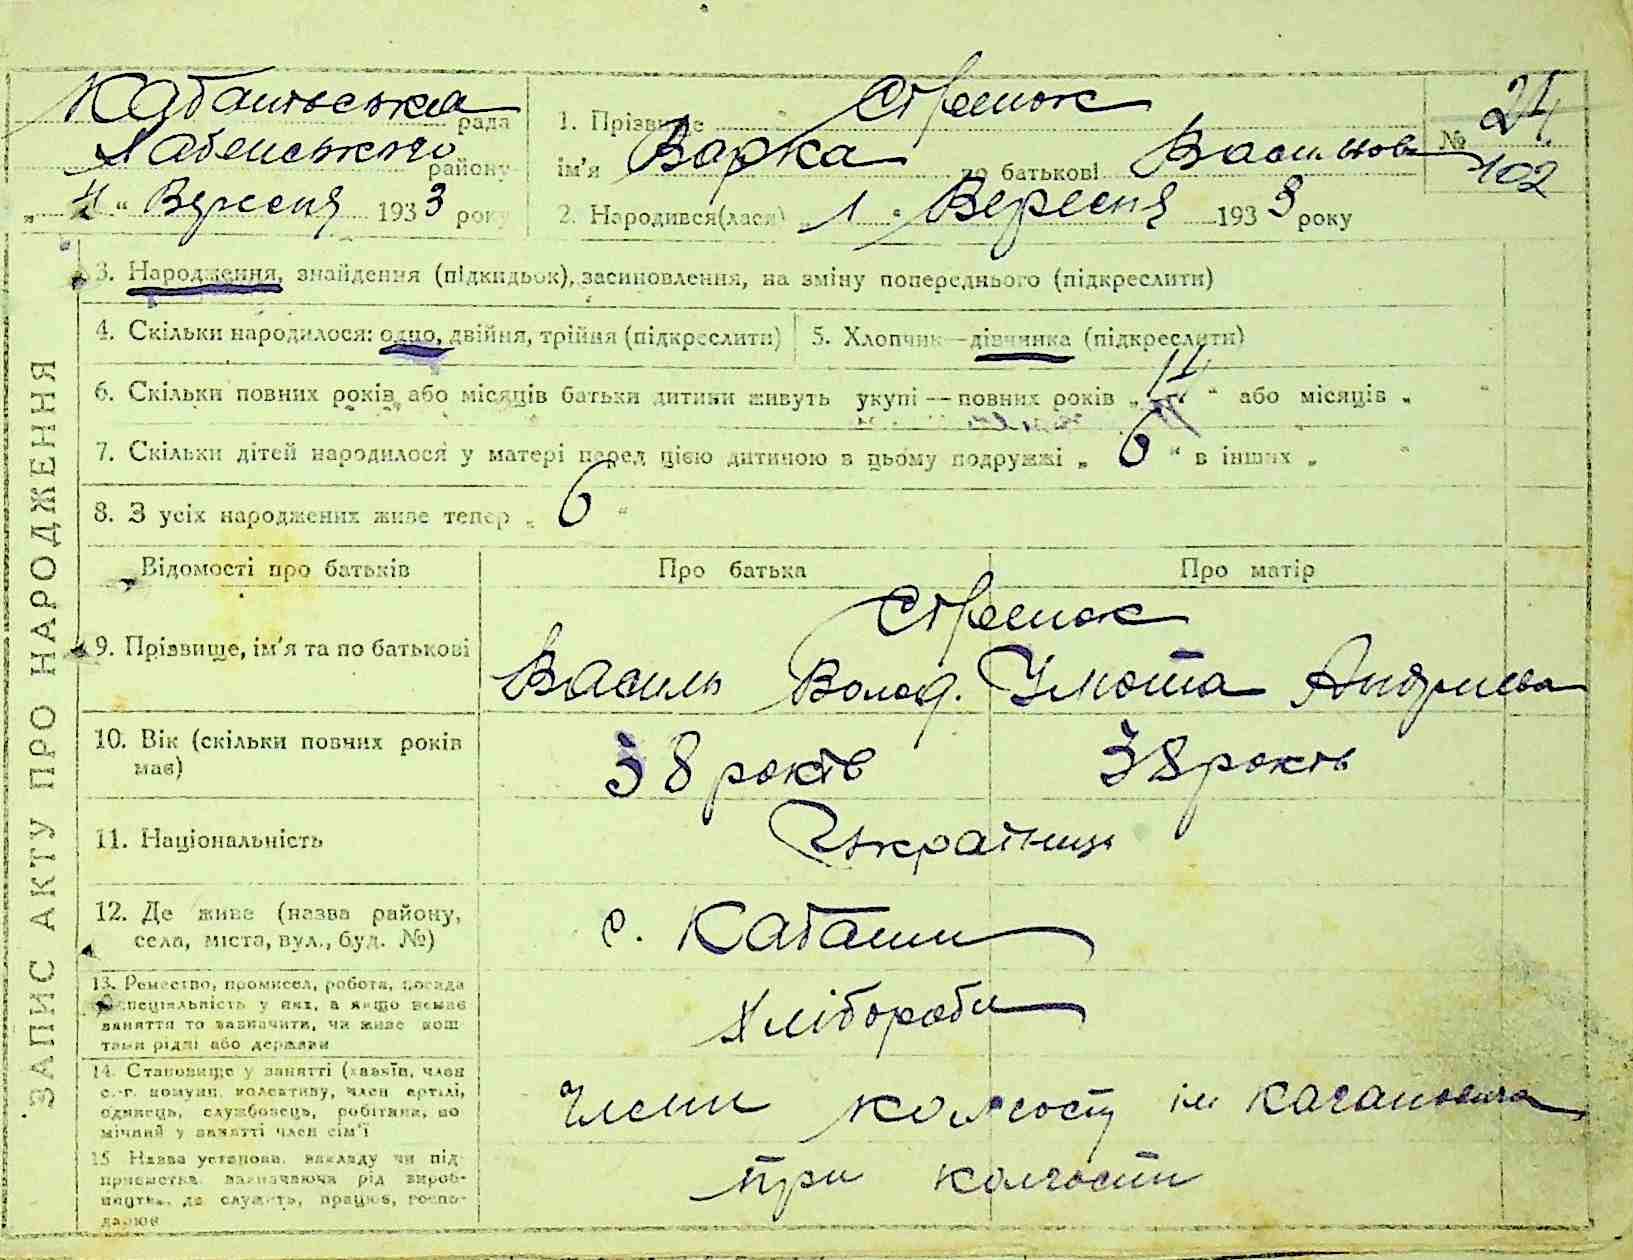 ЗАПИС АКТУ ПРО НАРОДЖЕННЯ
Кабанська рада
Хабенського району
"4" Вересня 1933 року
1. Прізвище
№ 24
102
ім'я Варка по батькові Василіова
2. Народився(лася) "1" Вересня 1933 року
3. Народження, знайдення (підкидьок), засиновлення, на зміну попереднього (підкреслити)
4. Скільки народилося: одно, двійня, трійня (підкреслити)
5. Хлопчик—дівчинка (підкреслити)
6. Скільки повних років або місяців батьки дитини живуть укупі — повних років " " або місяців "
7. Скільки дітей народилося у матері перед цією дитиною в цьому подружжі "6" в інших " "
8. З усіх народжених живе тепер "6"
Відомості про батьків
Про батька
Про матір
9. Прізвище, ім'я та по батькові
Василь Волод.
Андриева
10. Вік (скільки повних років має)
38 років
38 років
11. Національність
Українці
12. Де живе (назва району, села, міста, вул., буд. №)
с. Кабани
13. Ремество, промисел, робота, посада
спеціяльність у них, а якщо немає
заняття то зазначити, чи живе кош
тами рідні або держави
Хлібороби
14. Становище у занятті (хазяїн, член
с.-г. комуни, колективу, член артілі,
одинець, службовець, робітник, по
мічний у занятті член сім'ї
Члени колгоспу ім Кагановича
15. Назва установи, закладу чи під-
приємства, зазначаючи рід вироб-
ництва, де служить, працює, госпо-
дарює
при колгоспи